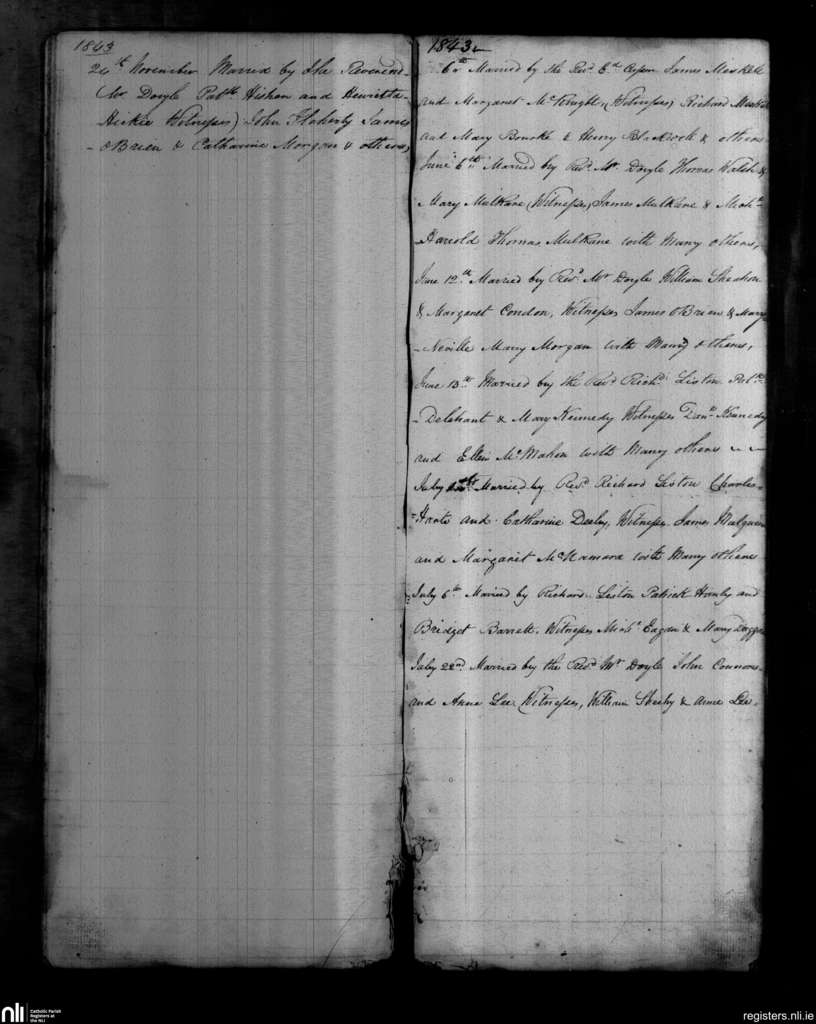 1843
24th November Married by the Reverend
Mr Doyle Patk Hishon and Henrietta
Heckie Witnesses) John Flaherty James
- OBrien & Catharine Morgan & others,
1843
6th Married by the Revd Ed James Meskell
and Margaret McKnight, (Witnesses) Richard
and Mary Bourke & Henry Blackock & others
June 6th Married by Revd Mr Doyle Thomas Walsh &
Mary Mulkane (Witnesses) James Mulkane & Michl
- Harold Thomas Mulkane with Many others,
June 12th Married by Revd Mr Doyle William Sheahon
& Margaret Condon, Witnesses James OBrien & Mary
- Neville Mary Morgan with Many others,
June 13th Married by the Revd Richd Liston Patk
- Delehant & Mary Kennedy Witnesses Danl Kennedy
and Ellen McMahon with Many others
July Married by Revd Richard Liston Charles
- Harte and Catharine Deely, Witnesses James
and Margaret McNamara with Many others
July 6th Married by Richard Liston Patrick and
Bridget Barrett. Witnesses Michl Eagan & Mary
July 22nd Married by the Revd Mr Doyle John Connors
and Anne Lee (Witnesses, William Sheehy & Anne Lee -
nli
Catholic Parish
Registers at
the NLI
registers.nli.ie